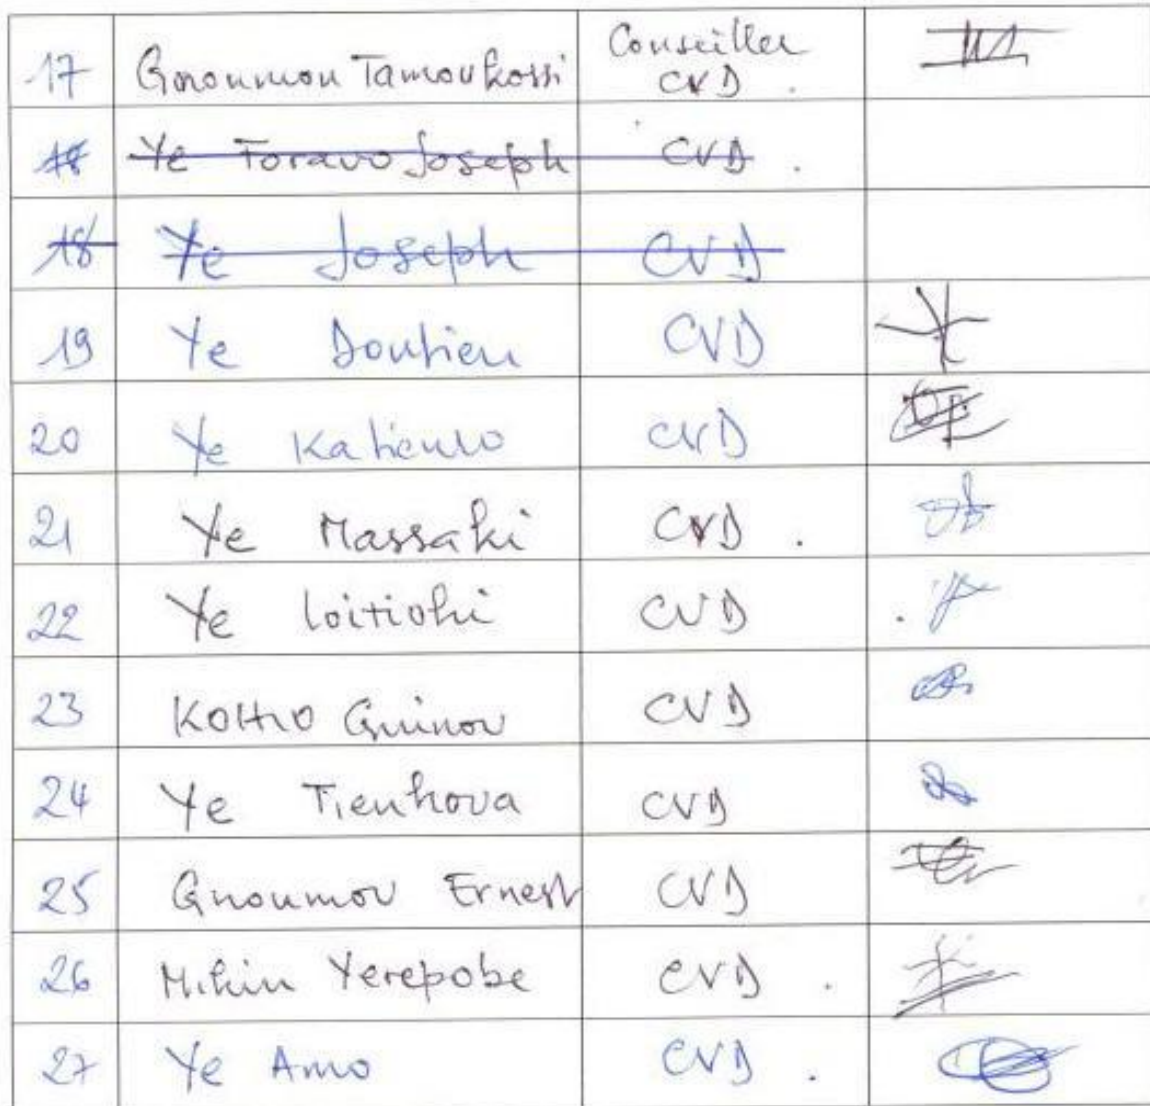 17 Gnoumou Tamoukossi Conseiller
CVD .
18 Ye Foravo Joseph CVD .
18 Ye Joseph CVD
19 Ye Doutieu CVD
20 Ye Katieulo CVD
21 Ye Massaki CVD .
22 Ye loitiohi CVD
23 KOHIO Guinou CVD
24 Ye Tienhova CVD
25 Gnoumou Ernest CVD
26 Mihin Yerepobe CVD .
27 Ye Amo CVD .